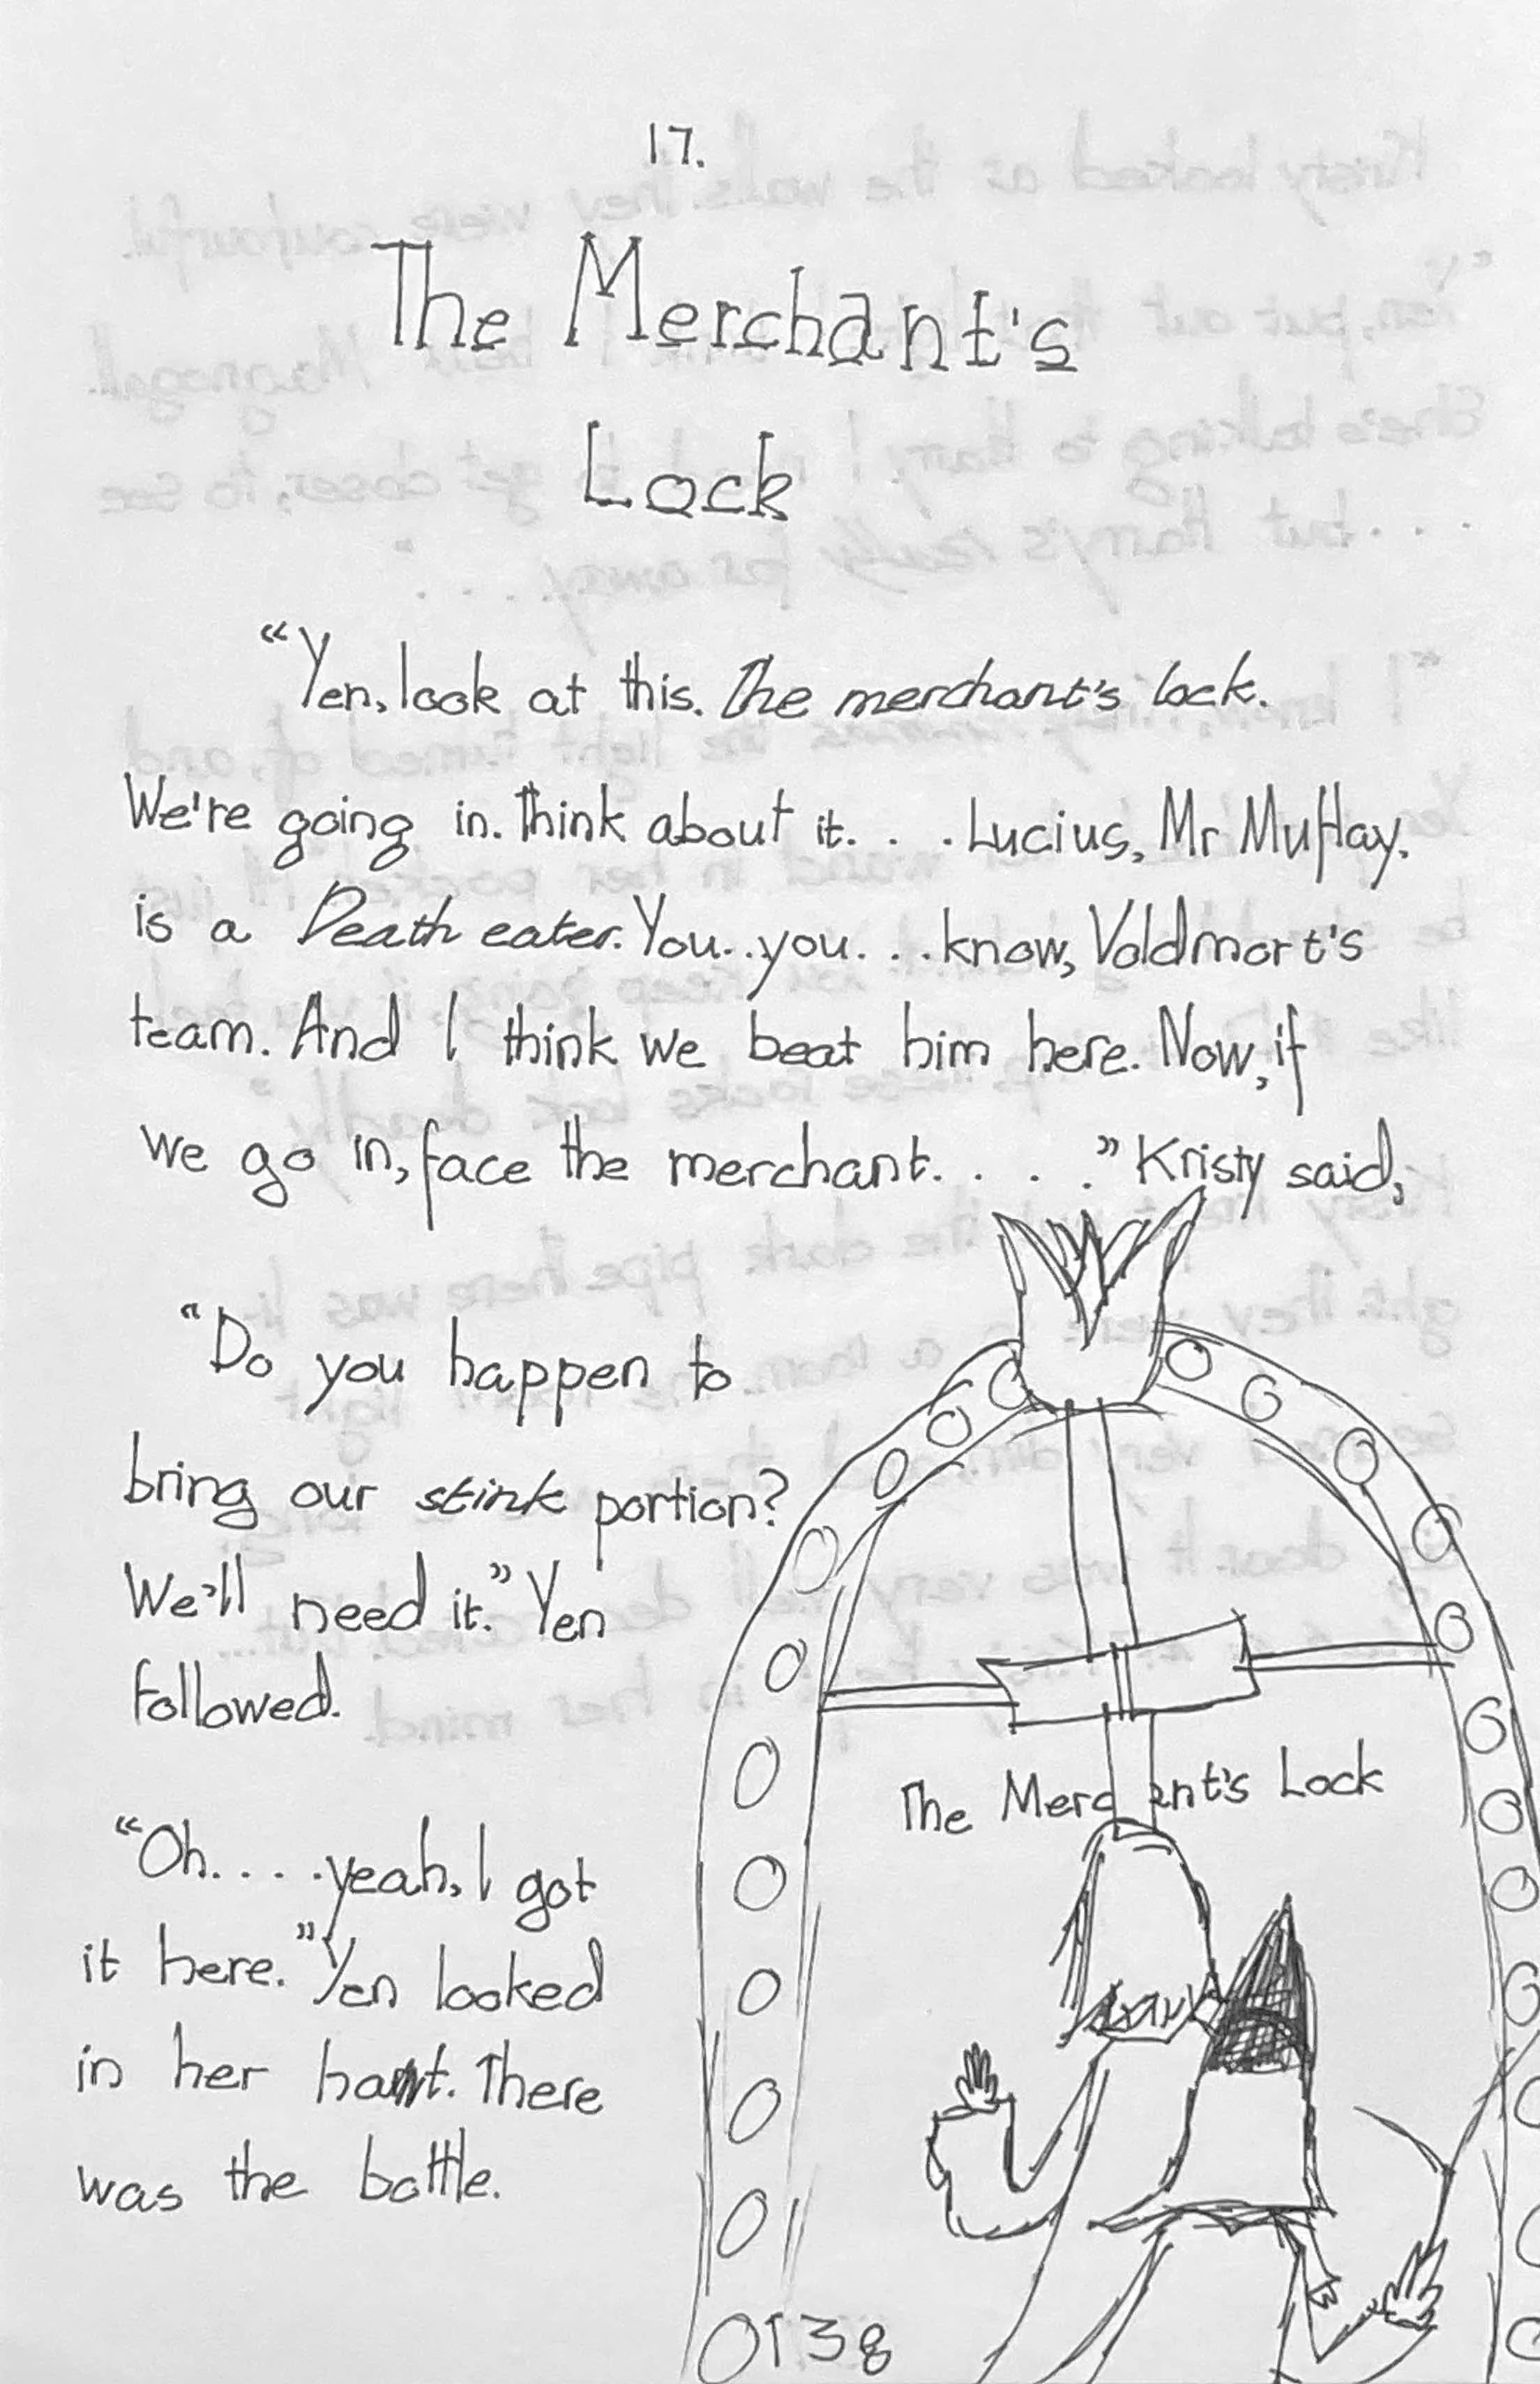 17.
The Merchant's
Lock
“Yen, look at this. The merchant's lock.
We're going in. Think about it. . . . Lucius, Mr Mulfay.
is a Death eater. You. . you. . . . know, Voldmort's
team. And I think we beat him here. Now, if
we go in, face the merchant. . . . .” Kristy said,
“Do you happen to
bring our stink portion?
We'll need it.” Yen
followed.
“Oh. . . . . yeah, I got
it here.” Yen looked
in her . There
was the bottle.
The Merc ant's Lock
0138